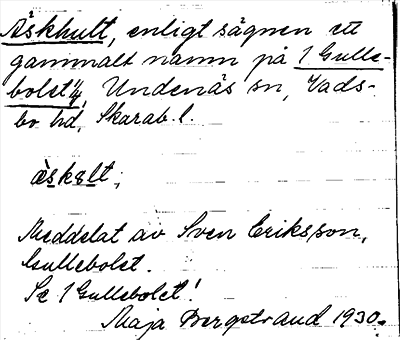 Äskhult, enligt sägnen ett
gammalt namn på 1 Gulle-
bolet 1/4, Undenäs sn, Vads-
bo hd, Skarab. l.
æ̀skɞlt,
Meddelat av Sven Eriksson,
Gullebolet.
Se 1 Gullebolet!
Maja Bergstrand 1930.